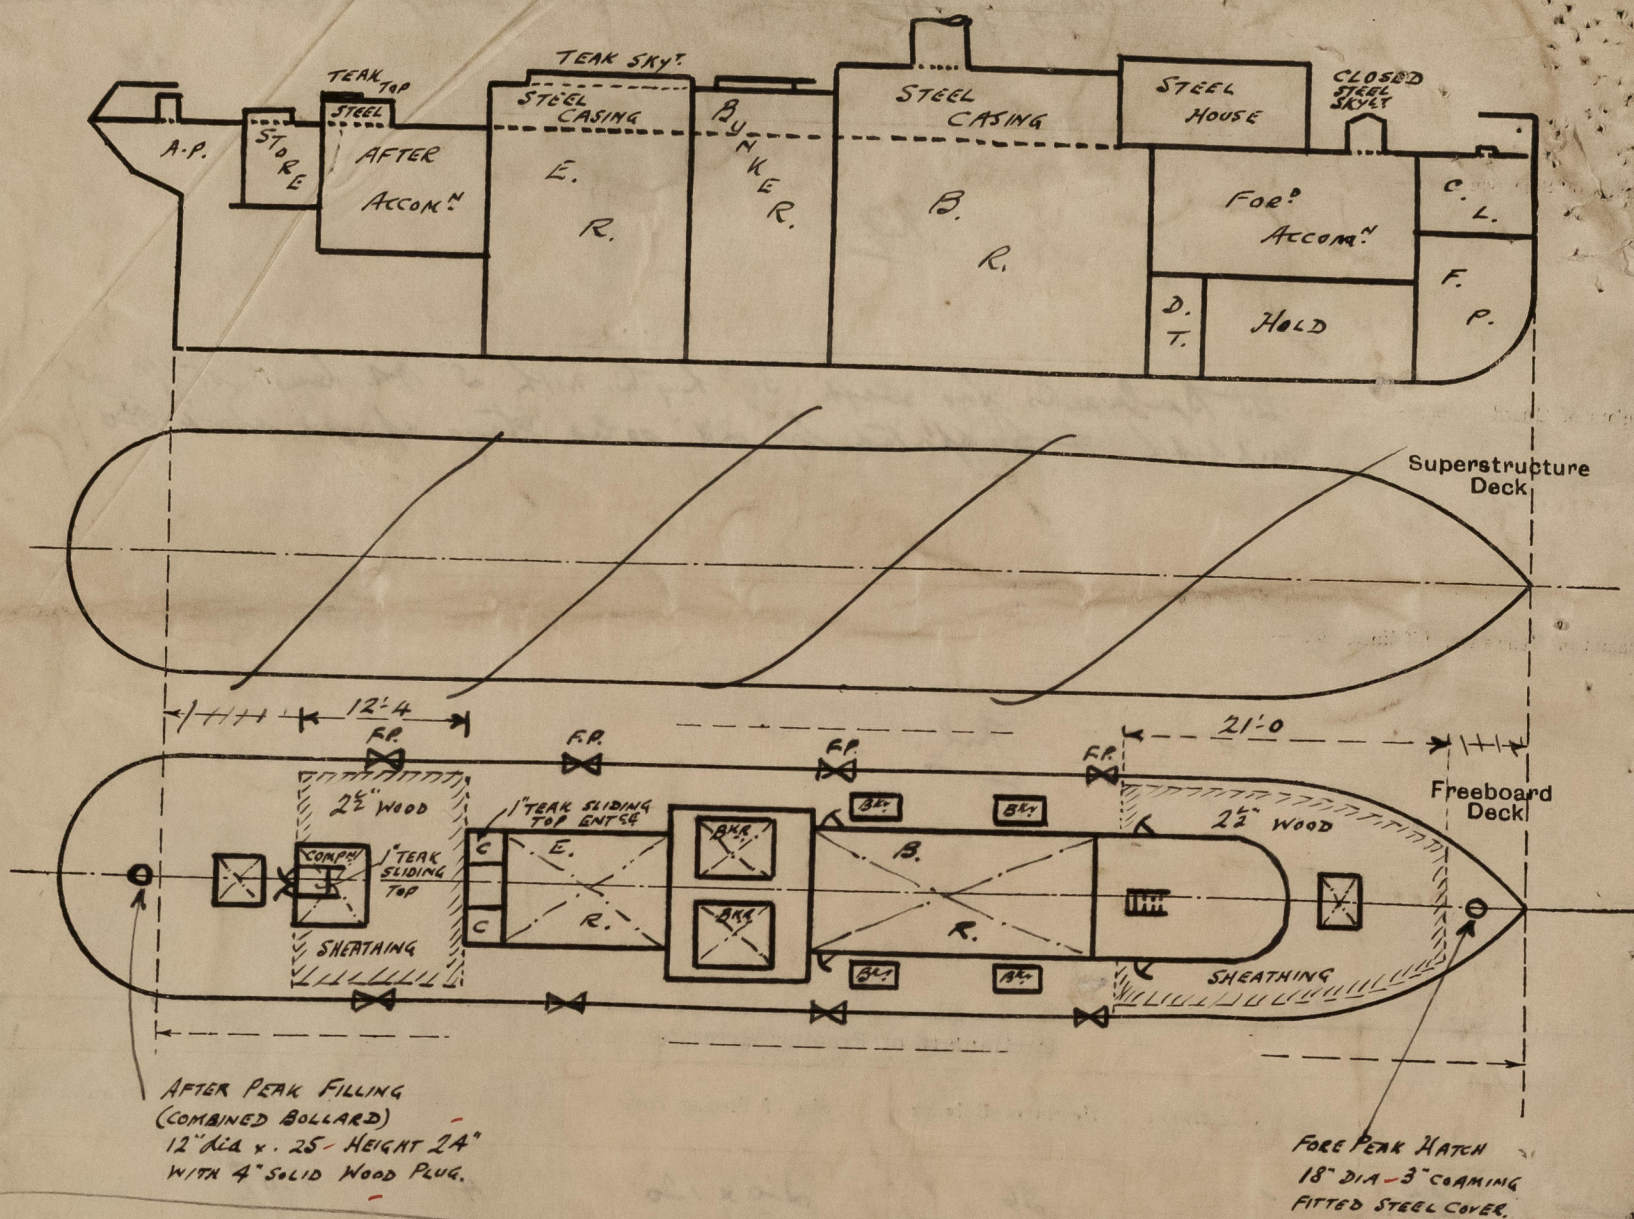 TEAK SKYT.
TEAK
TOP
STEEL
STEEL
CASING
BUNKER.
STEEL
CASING
STEEL
HOUSE
CLOSED
STEEL
SKYLT
A.P.
STORE
AFTER
ACCOMN
E.
R.
B.
R.
FORD
ACCOMN
C.
L.
D.
T.
HOLD
F.
P.
Superstructure
Deck
12'-4
21'-0
F.P.
F.P.
F.P.
F.P.
Freeboard
Deck
2½" WOOD
1" TEAK SLIDING
TOP ENTCE
BKR
BKR
2½" WOOD
COMPN
1" TEAK
SLIDING
TOP
C
E.
BKR.
B.
C
R.
BKR
R.
SHEATHING
BKR
BKR
SHEATHING
AFTER PEAK FILLING
(COMBINED BOLLARD)
12" dia x .25 - HEIGHT 24"
WITH 4" SOLID WOOD PLUG.
FORE PEAK HATCH
18" DIA - 3" COAMING
FITTED STEEL COVER.